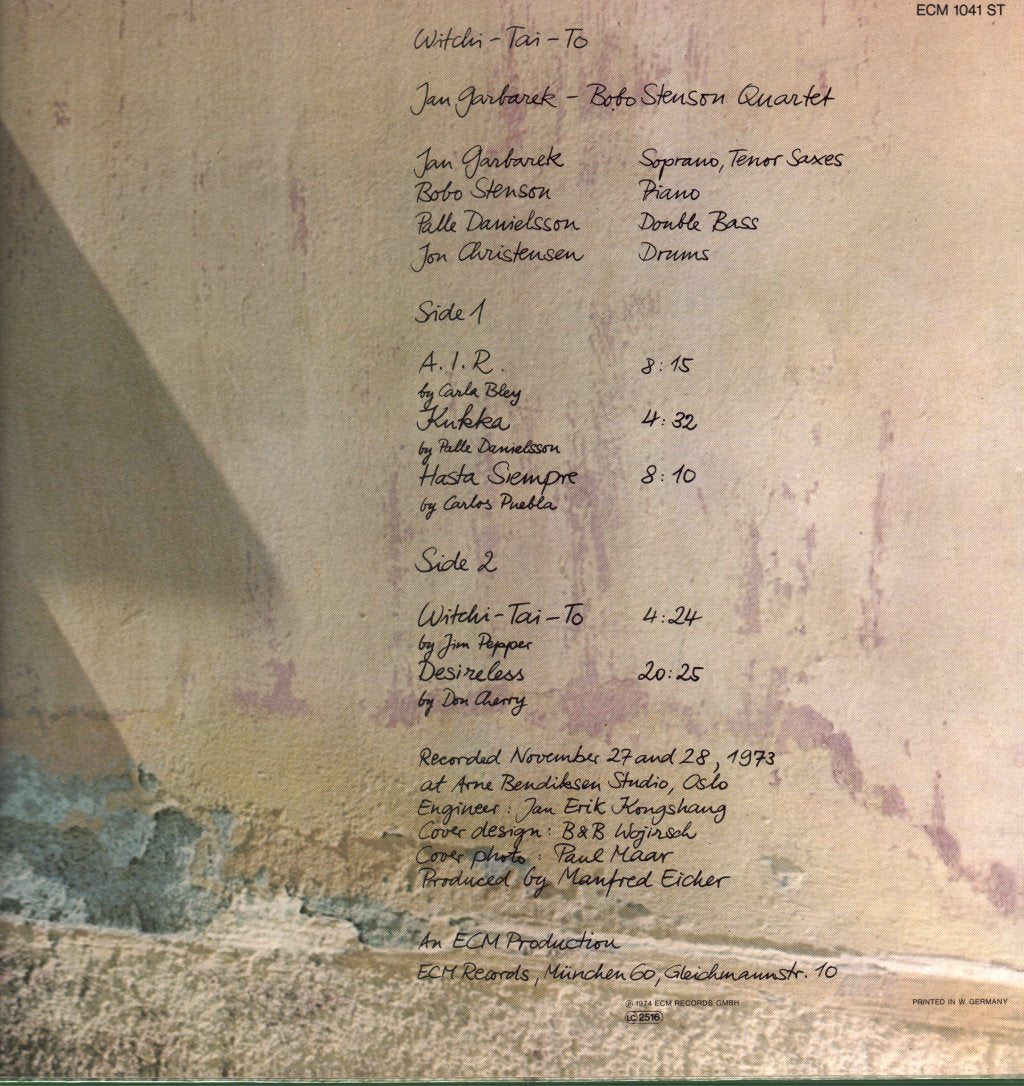 ECM 1041 ST
Witchi-Tai-To
Jan Garbarek - Bobo Stenson Quartet
Jan Garbarek Soprano, Tenor Saxes
Bobo Stenson Piano
Palle Danielsson Double Bass
Jon Christensen Drums
Side 1
A.I.R. 8:15
by Carla Bley
Kukka 4:32
by Palle Danielsson
Hasta Siempre 8:10
by Carlos Puebla
Side 2
Witchi-Tai-To 4:24
by Jim Pepper
Desireless 20:25
by Don Cherry
Recorded November 27 and 28, 1973
at Arne Bendiksen Studio, Oslo
Engineer: Jan Erik Kongshaug
Cover design: B&B Wojirsch
Cover photo: Paul Maar
Produced by Manfred Eicher
An ECM Production
ECM Records, München 60, Gleichmannstr. 10
℗ 1974 ECM RECORDS GMBH
PRINTED IN W. GERMANY
LC 2516